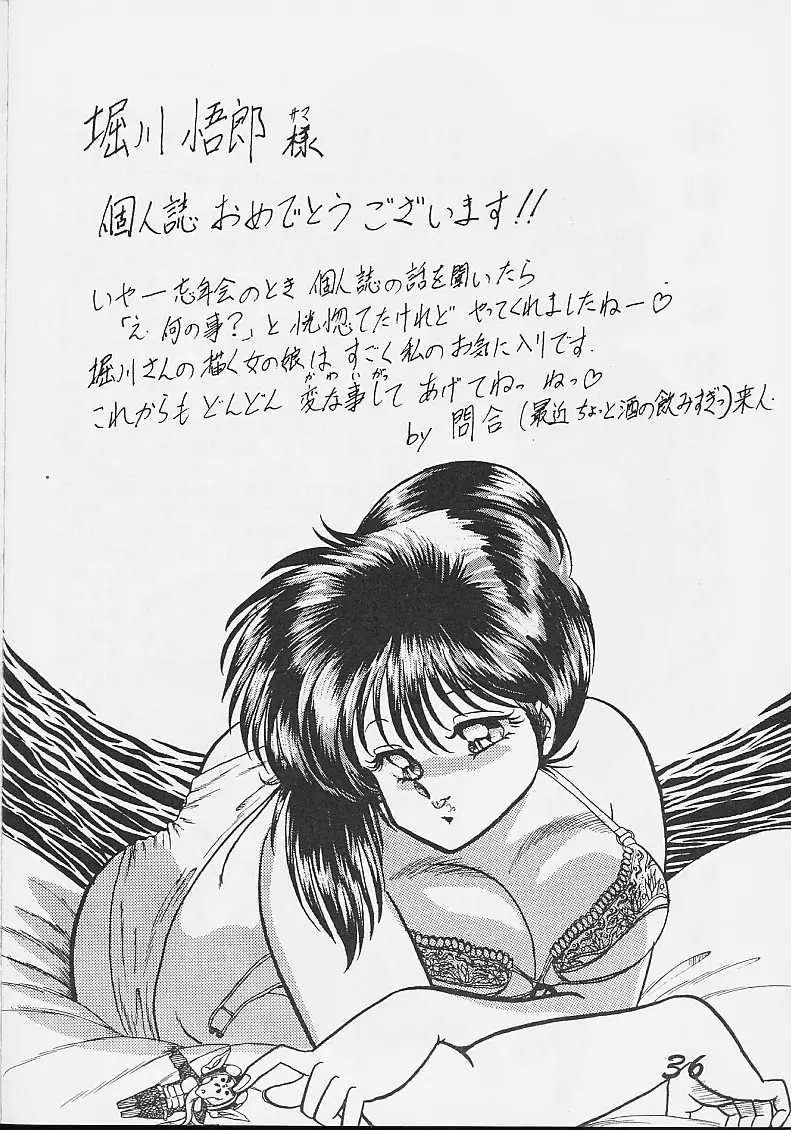 堀川 悟郎 様
サマ
個人誌 おめでとう ございます!!
いやー忘年会のとき 個人誌の話を聞いたら
「え、何の事?」と 恍惚てたけれど やってくれましたねー♡
堀川さんの描く女の娘は すごく私のお気に入りです.
かわいがっ
これからも どんどん 変な事して あげてねっ ねっ♡
by 問合 (最近 ちょっと酒の飲みすぎっ)来人
36